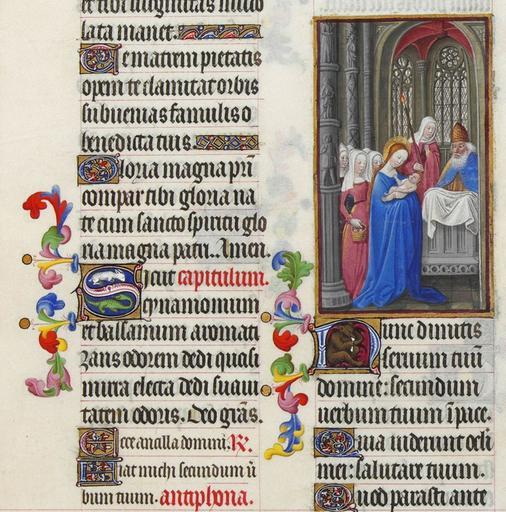 et tibi
lata manet.
Te matrem pietatis
opem te clamitat orbis
subuenias famulis o
benedicta tuis.
Gloria magna pri
compar tibi gloria na
te cum sancto spiritu glo
ria magna patri. Amen.
Sicut capitulum.
Cynamomum
et balsamum aromati
zans odorem dedi quasi
mirra electa dedi suaui
tatem odoris. Deo grãs.
Ecce ancilla domini. R.
Fiat michi secundum ũ
bum tuum. antiphona.
Nunc dimitis
seruum tuũ
domine: secundum
uerbum tuum ĩ pace.
Quia uiderunt oculi
mei: salutare tuum.
Quod parasti ante